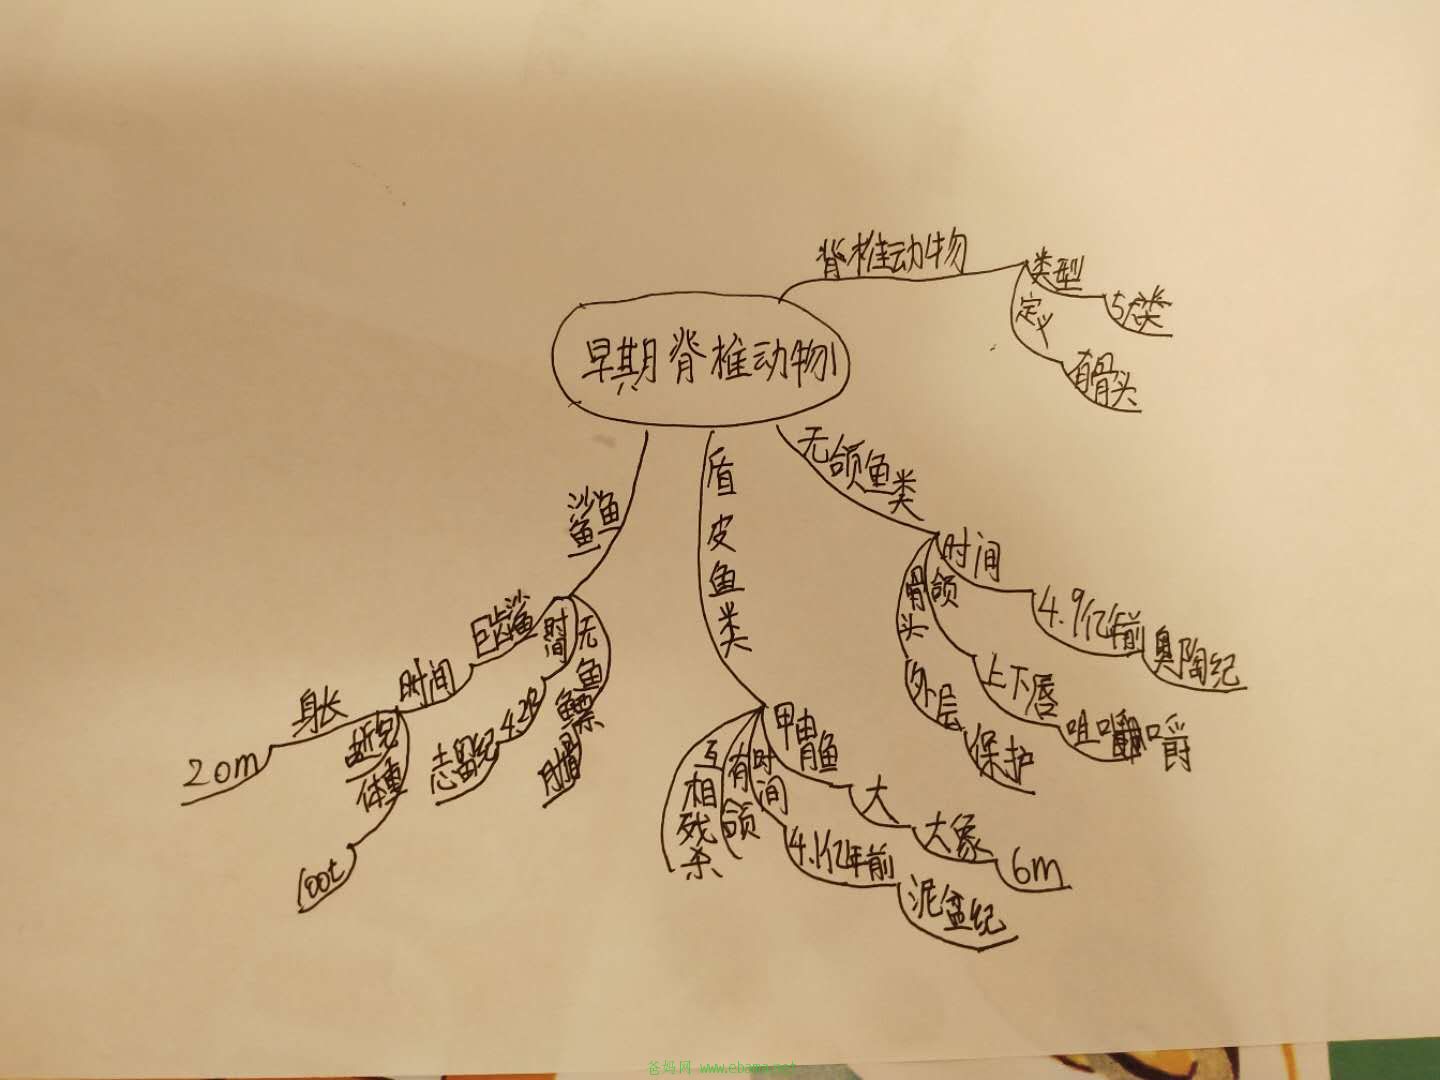 早期脊椎动物
脊椎动物
类型
5大类
定义
有骨头
无颌鱼类
时间
4.9亿年前
奥陶纪
颌
上下唇
咀嚼
骨头
外层
保护
盾皮鱼类
甲胄鱼
大
大象
6m
时间
4.1亿年前
泥盆纪
有颌
互相残杀
鲨鱼
无鱼鳔
时间
4.2B
志留纪
巨齿鲨
时间
身长
20m
体重
100t
爸妈网 www.ebama.net